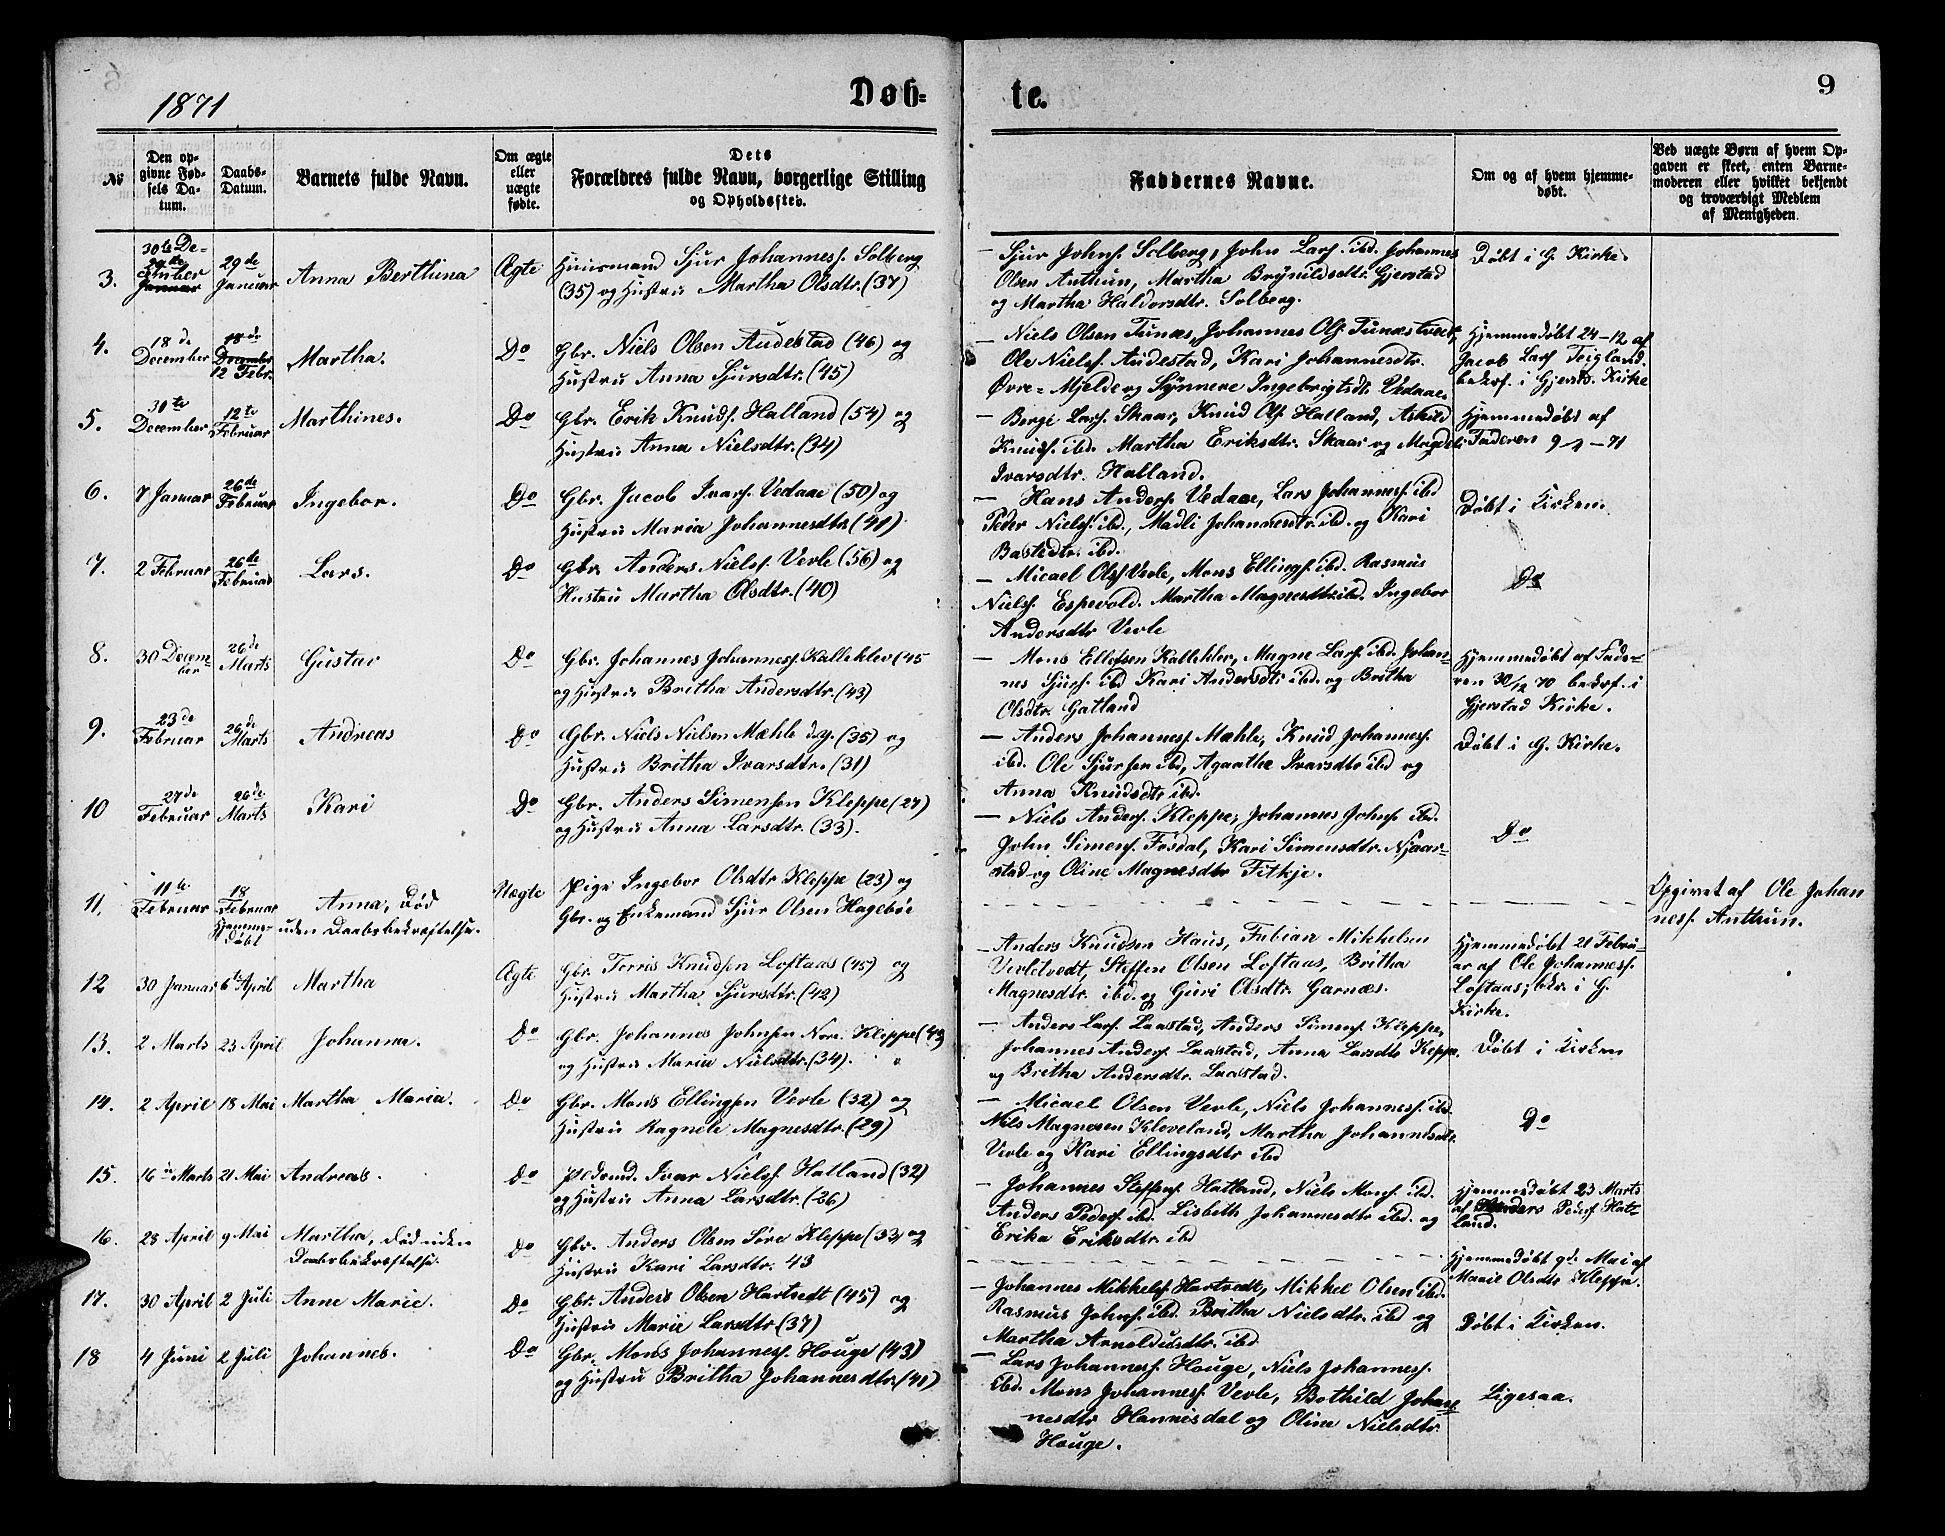 1871
Døb-
te.
9
No
Den op-
givne Fød-
sels Da-
tum.
Daabs-
Datum.
Barnets fulde Navn.
Om ægte
eller
uægte
fødte.
Dets
Forældres fulde Navn, borgerlige Stilling
og Opholdssted.
Faddernes Navne.
Om og af hvem hjemme-
døbt.
Ved uægte Børn af hvem Op-
gaven er skeet, enten Barne-
moderen eller hvilket bekjendt
og troværdigt Medlem
af Menigheden.
3.
30te De-
cember
Januar
29de
Januar
Anna Bertlina
Ægte
Huusmand Sjur Johanness. Solberg
(35) og Hustru Martha Olsdtr. (37)
— Sjur Johns. Solberg, John Lars. ibd. Johannes
Olsen Anthun, Martha Brynildsdtr. Gjerstad
og Martha Haldorsdtr. Solberg.
Døbt i G. Kirke.
4.
18de
December
18de
December
12 Febr.
Martha.
Do
Gbr. Niels Olsen Audestad (46) og
Hustru Anna Sjursdtr. (45)
— Niels Olsen Tunæs, Johannes Ols. Tunæstvedt,
Ole Niels. Audestad, Kari Johannesdtr.
Øvre-Mjelde og Synneve Ingebrigtsdtr. Vedaae.
Hjemmedøbt 24-12 af
Jacob Lars. Teigland.
bekræf. i Gjerst. Kirke
5.
30te
December
12te
Februar
Marthines.
Do
Gbr. Erik Knuds. Halland (54) og
Hustru Anna Nielsdtr. (34)
— Berge Lars. Skaar, Knud Ols. Halland, Askild
Knuds. ibd. Martha Eriksdtr. Skaar og Magdeli
Ivarsdtr. Halland.
Hjemmedøbt af
Faderen 9-1-71
6.
7 Januar
26de
Februar
Ingebor.
Do
Gbr. Jacob Ivars. Vedaae (50) og
Hustru Maria Johannesdtr. (41)
— Hans Anders. Vedaae, Lars Johanness. ibd
Peder Niels. ibd., Madli Johannesdtr. ibd. og Kari
Bastedtr. ibd.
Døbt i Kirken.
7.
2 Februar
26de
Februar
Lars.
Do
Gbr. Anders Niels. Verle (56) og
Hustru Martha Olsdtr. (40)
— Micael Ols. Verle, Mons Ellings. ibd. Rasmus
Niels. Espevold. Martha Magnesdtr. ibd. Ingebor
Andersdtr Verle
Do
8.
30 Decem-
ber
26de
Marts
Gustav
Do
Gbr. Johannes Johanness. Kalleklev (45
og Hustru Britha Andersdtr. (43)
— Mons Ellefsen Kalleklev, Magne Lars. ibd. Johan-
nes Sjurs. ibd Kari Andersdtr ibd. og Britha
Olsdtr. Gatland
Hjemmedøbt af Fade-
ren 30/12 70 bekræf. i
Gjerstad Kirke.
9.
23de
Februar
26de
Marts
Andreas
Do
Gbr. Niels Nielsen Mæhle d.y. (35) og
Hustru Britha Ivarsdtr. (31)
— Anders Johanness. Mæhle, Knud Johanness.
ibd. Ole Sjursen ibd, Agaathe Ivarsdtr ibd og
Anna Knudsdtr ibd.
Døbt i G. Kirke.
10
27de
Februar
26de
Marts
Kari
Do
Gbr. Anders Simensen Kleppe (27)
og Hustru Anna Larsdtr. (33).
— Niels Anders. Kleppe, Johannes Johns. ibd.
John Simens. Fosdal, Kari Simensdtr. Njaar-
stad og Oline Magnesdtr Fitkje.
Do
11.
11te
Februar
18
Februar
Hjemme-
døbt
Anna, død
uden Daabsbekræftelse.
Uægte
Pige Ingebor Olsdtr Kleppe (23) og
Gbr. og Enkemand Sjur Olsen Hagebøe
Opgivet af Ole Johan
ness. Anthun.
12
30 Januar
6te April
Martha
Ægte
Gbr. Torris Knudsen Loftaas (45) og
Hustru Martha Sjursdtr. (42)
— Anders Knudsen Haus, Fabian Mikkelsen
Verletvedt, Steffen Olsen Loftaas, Britha
Magnesdtr. ibd. og Guri Olsdtr. Garnæs.
Hjemmedøbt 21 Febru-
ar af Ole Johanness.
Loftaas; bekr. i G.
Kirke.
13.
2 Marts
23 April
Johanna.
Do
Gbr. Johannes Johnsen Nore Kleppe (43)
og Hustru Maria Nielsdtr. (34).
— Anders Lars. Laastad, Anders Simens. Kleppe,
Johannes Anders. Laastad, Anna Larsdtr Keppe.
og Britha Andersdtr. Laastad.
Døbt i Kirken
14.
2 April
18 Mai
Martha Maria.
Do
Gbr. Mons Ellingsen Verle (32) og
Hustru Ragnele Magnesdtr. (29)
— Micael Olsen Verle, Niels Johanness. ibd.
Nils Magnesen Kleveland, Martha Johannesdtr.
Verle og Kari Ellingsdtr ibd
Do
15.
16 Marts
21 Mai
Andreas.
Do
Pl. Ivar Niels. Hatland (32)
og Hustru Anna Larsdtr. (26)
— Johannes Steffens. Hatland, Niels Mons. ibd.
Anders Peders. ibd. Lisbeth Johannesdtr ibd. og
Erika Eriksdtr. ibd
Hjemmedøbt 23 Marts
af Anders Peders. Hat-
land.
16.
28 April
9 Mai
Martha, død uden
Daabsbekræftelse.
Do
Gbr. Anders Olsen Søre Kleppe (33) og
Hustru Kari Larsdtr. 43
Hjemmedøbt 9de Mai af
Marie Olsdtr Kleppe.
17.
30 April
2 Juli
Anne Marie.
Do
Gbr. Anders Olsen Hartvedt (45) og
Hustru Marie Larsdtr (37)
— Johannes Mikkels. Hartvedt, Mikkel Olsen ibd.
Rasmus Johns. ibd. Britha Nielsdtr. ibd og
Martha Arnoldusdtr. ibd
Døbt i Kirken.
18
4 Juni
2 Juli
Johannes.
Do
Gbr. Mons Johanness. Houge (43)
og Hustru Britha Johannesdtr. (41)
— Lars Johanness. Houge, Niels Johanness.
ibd. Mons Johanness. Verle, Bothild Johan-
nesdtr Hannisdal og Oline Nielsdtr.
Houge.
Ligesaa.